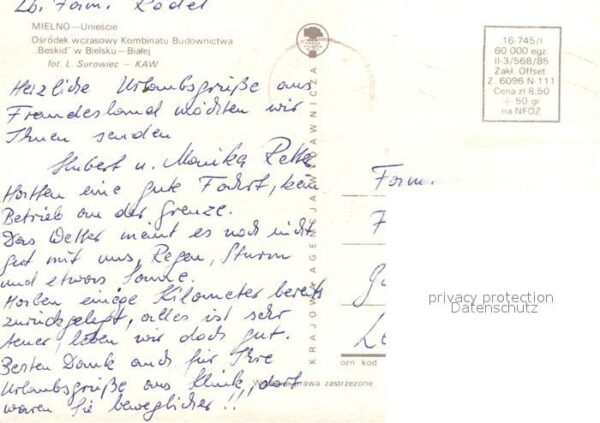 Lbr. Fam. Rödel
MIELNO—Unieście
Ośrodek wczasowy Kombinatu Budownictwa
„Beskid" w Bielsku-Białej
fot L. Surowiec — KAW
16-745/I
60 000 egz.
II-3/568/85
Zakł. Offset
Z. 6096 N-111
Cena zł 8,50
+ 50 gr
na NFOZ
Herzliche Urlaubsgrüße aus
Freundesland möchten wir
Ihnen senden
Hubert u. Monika
Hatten eine gute Fahrt, kein
Betrieb an der Grenze.
Das Wetter meint es noch nicht
gut mit uns, Regen, Sturm
und etwas Sonne.
Haben einige Kilometer bereits
zurückgelegt, alles ist sehr
teuer, leben wir doch gut.
Besten Dank auch für Ihre
Urlaubsgrüße aus Klink, dort
waren Sie beweglicher!!
KRAJOWA AGENCJA WYDAWNICZA
Fam.
privacy protection
Datenschutz
ozn. kod
prawa zastrzeżone